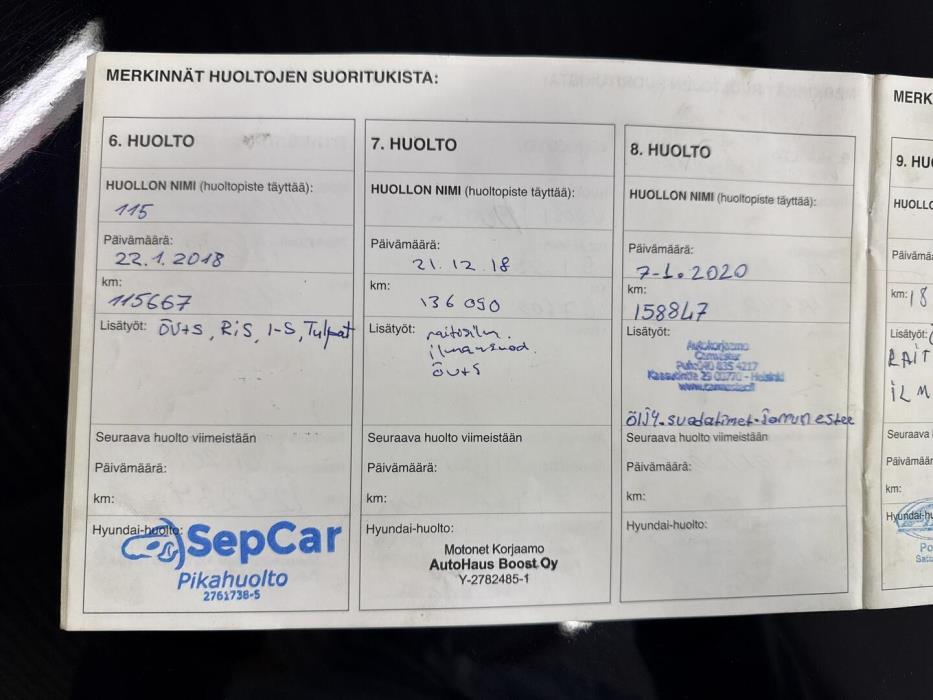 MERKINNÄT HUOLTOJEN SUORITUKISTA:
6. HUOLTO
HUOLLON NIMI (huoltopiste täyttää):
115
Päivämäärä:
22.1.2018
km:
115667
Lisätyöt: ÖV+S, RiS, I-S, Tulpat
Seuraava huolto viimeistään
Päivämäärä:
km:
Hyundai-huolto:
SepCar
Pikahuolto
2761738-5
7. HUOLTO
HUOLLON NIMI (huoltopiste täyttää):
Päivämäärä:
21.12.18
km:
136 090
Lisätyöt: raitisilm.
ilmansuod.
öv+s
Seuraava huolto viimeistään
Päivämäärä:
km:
Hyundai-huolto:
Motonet Korjaamo
AutoHaus Boost Oy
Y-2782485-1
8. HUOLTO
HUOLLON NIMI (huoltopiste täyttää):
Päivämäärä:
7-1.2020
km:
158847
Lisätyöt:
Autokorjaamo
Carmeister
Puh:040 835 4217
00770 - Helsinki
ÖljY-suodatimet-jarrunestee
Seuraava huolto viimeistään
Päivämäärä:
km:
Hyundai-huolto:
MERK
9. HU
HUOLLO
Päivämää
km: 18
Lisätyöt:
RAIT
ILM
Seuraava
Päivämäär
km:
Hyundai-hu